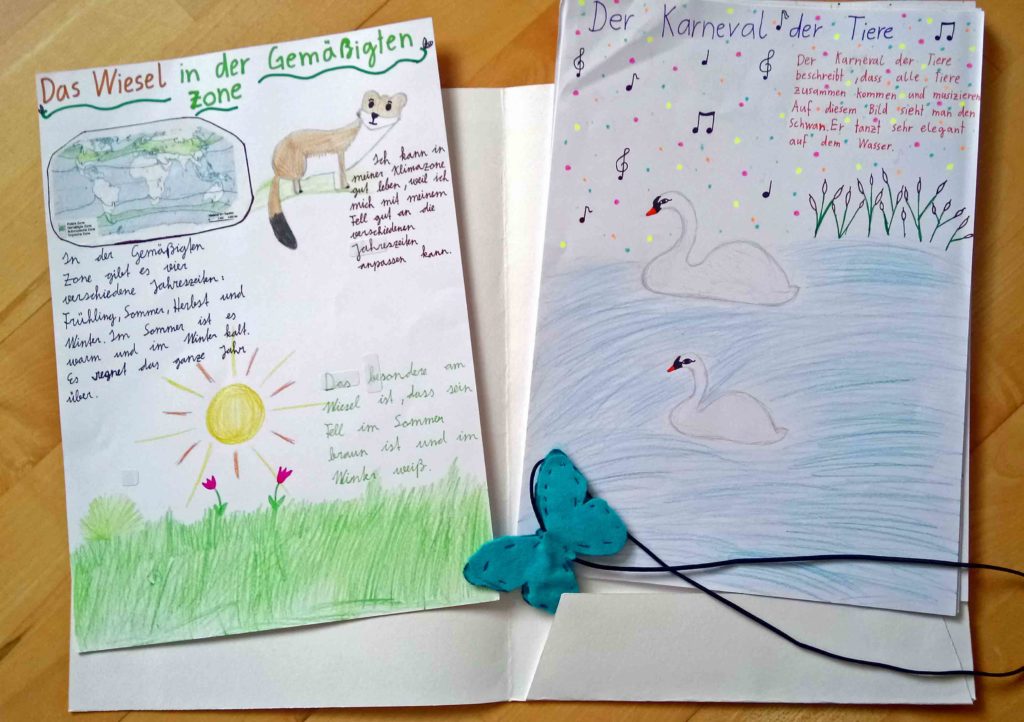 Das Wiesel in der Gemäßigten
Zone
Ich kann in
meiner Klimazone
gut leben, weil ich
mich mit meinem
Fell gut an die
verschiedenen
Jahreszeiten
anpassen kann.
In der Gemäßigten
Zone gibt es vier
verschiedene Jahreszeiten:
Frühling, Sommer, Herbst und
Winter. Im Sommer ist es
warm und im Winter kalt.
Es regnet das ganze Jahr
über.
Das besondere am
Wiesel ist, dass sein
Fell im Sommer
braun ist und im
Winter weiß.
Der Karneval der Tiere
Der Karneval der Tiere
beschreibt, dass alle Tiere
zusammen kommen und musizieren
Auf diesem Bild sieht man den
Schwan. Er tanzt sehr elegant
auf dem Wasser.